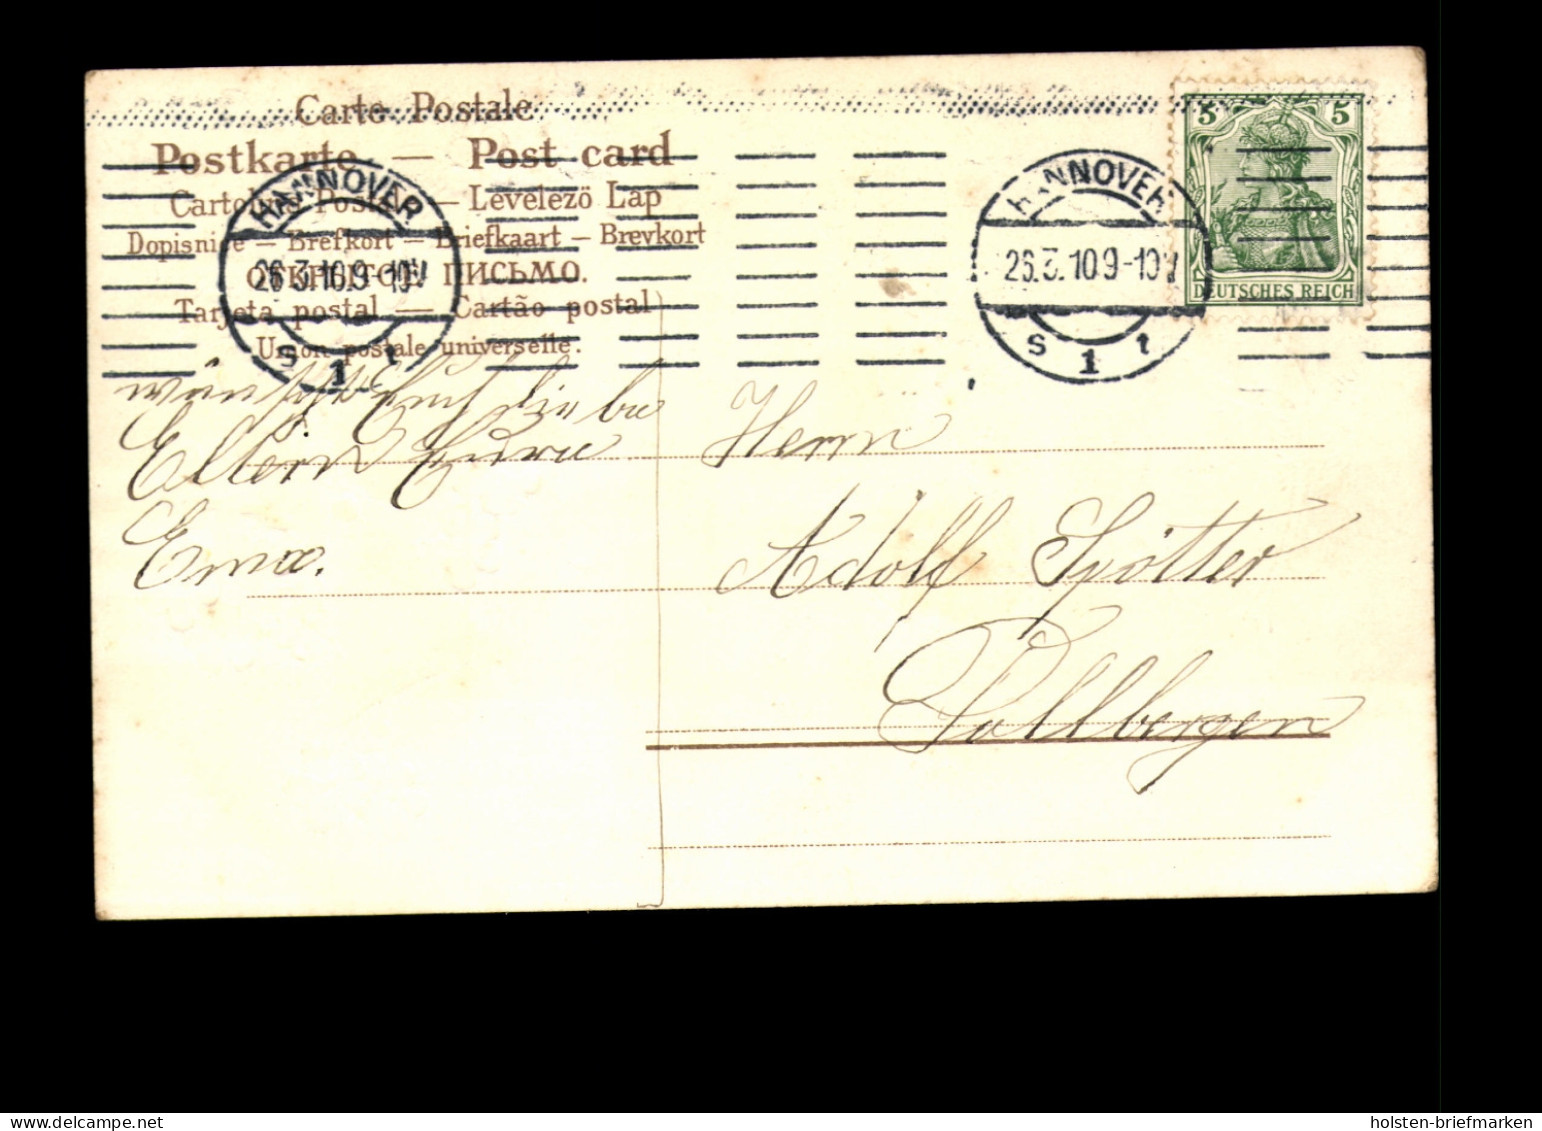 Carte Postale
Postkarte — Post card
Levelező Lap
Dopisnice — Brefkort — Briefkaart — Brevkort
ОТКРЫТОЕ ПИСЬМО.
Tarjeta postal — Cartão postal
Union postale universelle.
HANNOVER
26.3.10.9-10V
S 1 t
HANNOVER
26.3.10 9-10V
S 1 t
5 5
DEUTSCHES REICH
wünscht Euch die
Eltern Eure
Erna.
Herrn
Adolf Spötter
Pollbergen
www.delcampe.net
holsten-briefmarken